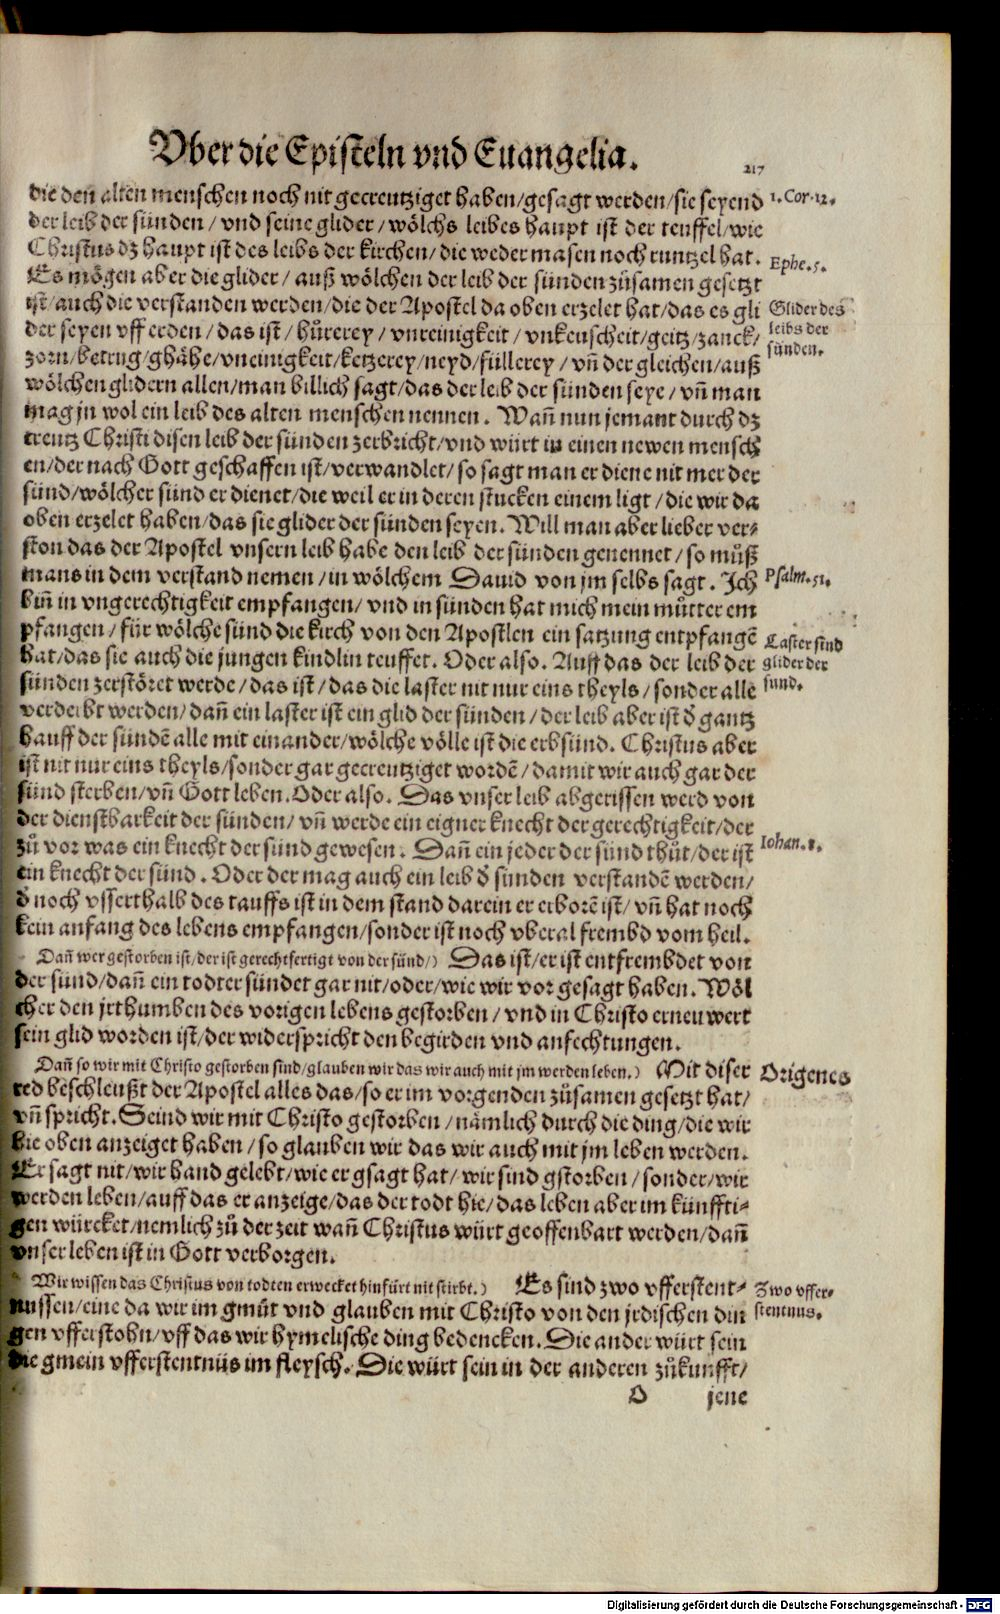 Vber die Episteln vnd Euangelia.
217
die den alten menschen noch nit gecreutziget haben/gesagt werden/sie seyend
1. Cor. 12.
der leib der sünden/ vnd seine glider/ wölchs leibes haupt ist der teuffel/wie
Christus dz haupt ist des leibs der kirchen/die weder masen noch runtzel hat.
Ephe. 5.
Es mögen aber die glider/ auß wölchen der leib der sünden zůsamen gesetzt
ist/auch die verstanden werden/die der Apostel da oben erzelet hat/das es gli
Glider des
der seyen vff erden/ das ist/ hůrerey/ vnreinigkeit/ vnkeuscheit/geitz/zanck/
leibs der
zorn/betrug/ghähe/vneinigkeit/ketzerey/neyd/füllerey/ vñ der gleichen/auß
sünden.
wölchen glidern allen/man billich sagt/das der leib der sünden seye/ vñ man
mag jn wol ein leib des alten menschen nennen. Wañ nun jemant durch dz
creutz Christi disen leib der sünden zerbricht/vnd würt in einen newen mensch
en/der nach Gott geschaffen ist/verwandlet/so sagt man er diene nit mer der
sünd/wölcher sünd er dienet/die weil er in deren stucken einem ligt/die wir da
oben erzelet haben/das sie glider der sünden seyen. Will man aber lieber ver-
ston das der Apostel vnsern leib habe den leib der sünden genennet/so můß
mans in dem verstand nemen/in wölchem Dauid von jm selbs sagt. Ich
Psalm. 51.
biñ in vngerechtigkeit empfangen/ vnd in sünden hat mich mein můtter em
pfangen/für wölche sünd die kirch von den Apostlen ein satzung entpfangẽ
Laster sind
hat/das sie auch die jungen kindlin teuffet. Oder also. Auff das der leib der
glider der
sünden zerstöret werde/das ist/das die laster nit nur eins theyls/sonder alle
sund.
verderbt werden/dañ ein laster ist ein glid der sünden/der leib aber ist ð gantz
hauff der sündẽ alle mit einander/wölche völle ist die erbsünd. Christus aber
ist nit nur eins theyls/sonder gar gecreutziget wordẽ/damit wir auch gar der
sünd sterben/vñ Gott leben. Oder also. Das vnser leib abgerissen werd von
der dienstbarkeit der sünden/ vñ werde ein eigner knecht der gerechtigkeit/der
zů vor was ein knecht der sünd gewesen. Dañ ein jeder der sünd thůt/der ist
Iohan. 8.
ein knecht der sünd. Oder der mag auch ein leib ð sünden verstandẽ werden/
ð noch vsserthalb des tauffs ist in dem stand darein er erborẽ ist/ vñ hat noch
kein anfang des lebens empfangen/sonder ist noch vberal frembd vom heil.
Dañ wer gestorben ist/der ist gerechtfertigt von der sünd/) Das ist/er ist entfrembdet von
der sünd/dañ ein todter sündet gar nit/oder/wie wir vor gesagt haben. Wöl
cher den jrthumben des vorigen lebens gestorben/ vnd in Christo erneuwert
sein glid worden ist/der widerspricht den begirden vnd anfechtungen.
Dañ so wir mit Christo gestorben sind/glauben wir das wir auch mit jm werden leben.) Mit diser
Origenes
red beschleußt der Apostel alles das/so er im vorgenden zůsamen gesetzt hat/
vñ spricht. Seind wir mit Christo gestorben/nämlich durch die ding/die wir
hie oben anzeiget haben/so glauben wir das wir auch mit jm leben werden.
Er sagt nit/wir hand gelebt/wie er gsagt hat/wir sind gstorben/sonder/wir
werden leben/auff das er anzeige/das der todt hie/das leben aber im künffti-
gen würcket/nemlich zů der zeit wañ Christus würt geoffenbart werden/dañ
vnser leben ist in Gott verborgen.
Wir wissen das Christus von todten erwecket hinfürt nit stirbt.) Es sind zwo vfferstent-
Zwo vffer-
nussen/eine da wir im gmůt vnd glauben mit Christo von den jrdischen din
stentnus.
gen vfferstohn/vff das wir hymelische ding bedencken. Die ander würt sein
die gmein vfferstentnüs im fleysch. Die würt sein in der anderen zůkunfft/
O
jene
Digitalisierung gefördert durch die Deutsche Forschungsgemeinschaft - DFG